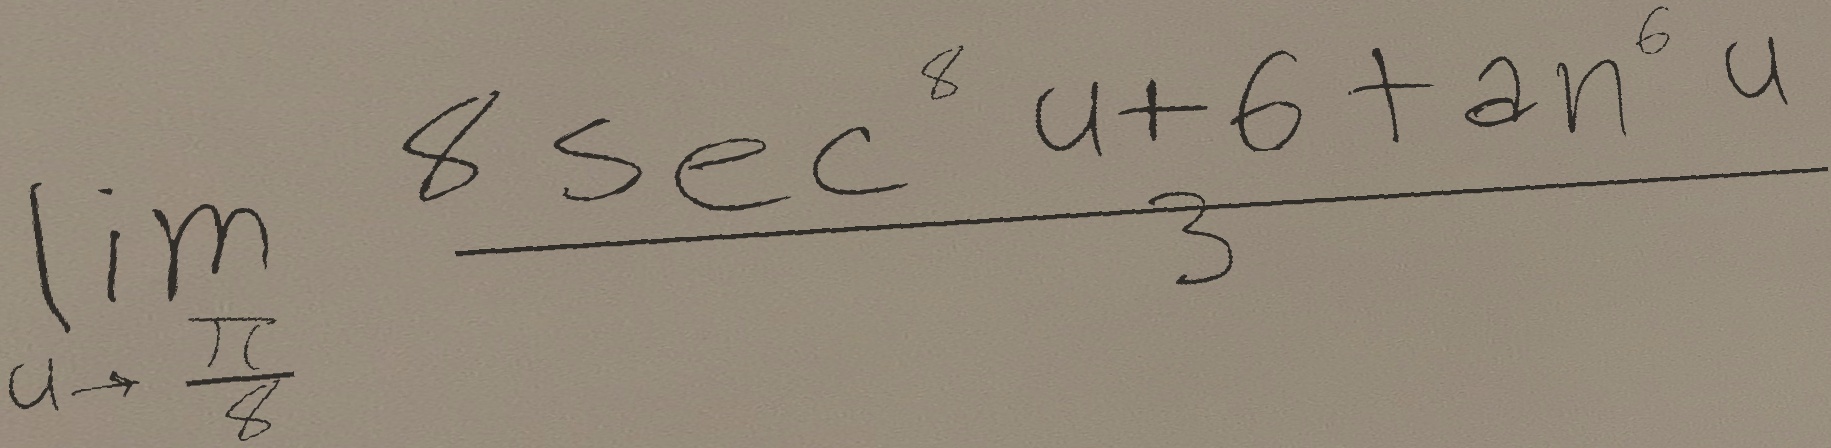 \lim_{u \to \frac{\pi}{8}} \frac{8 \sec^8 u + 6 \tan^6 u}{3}